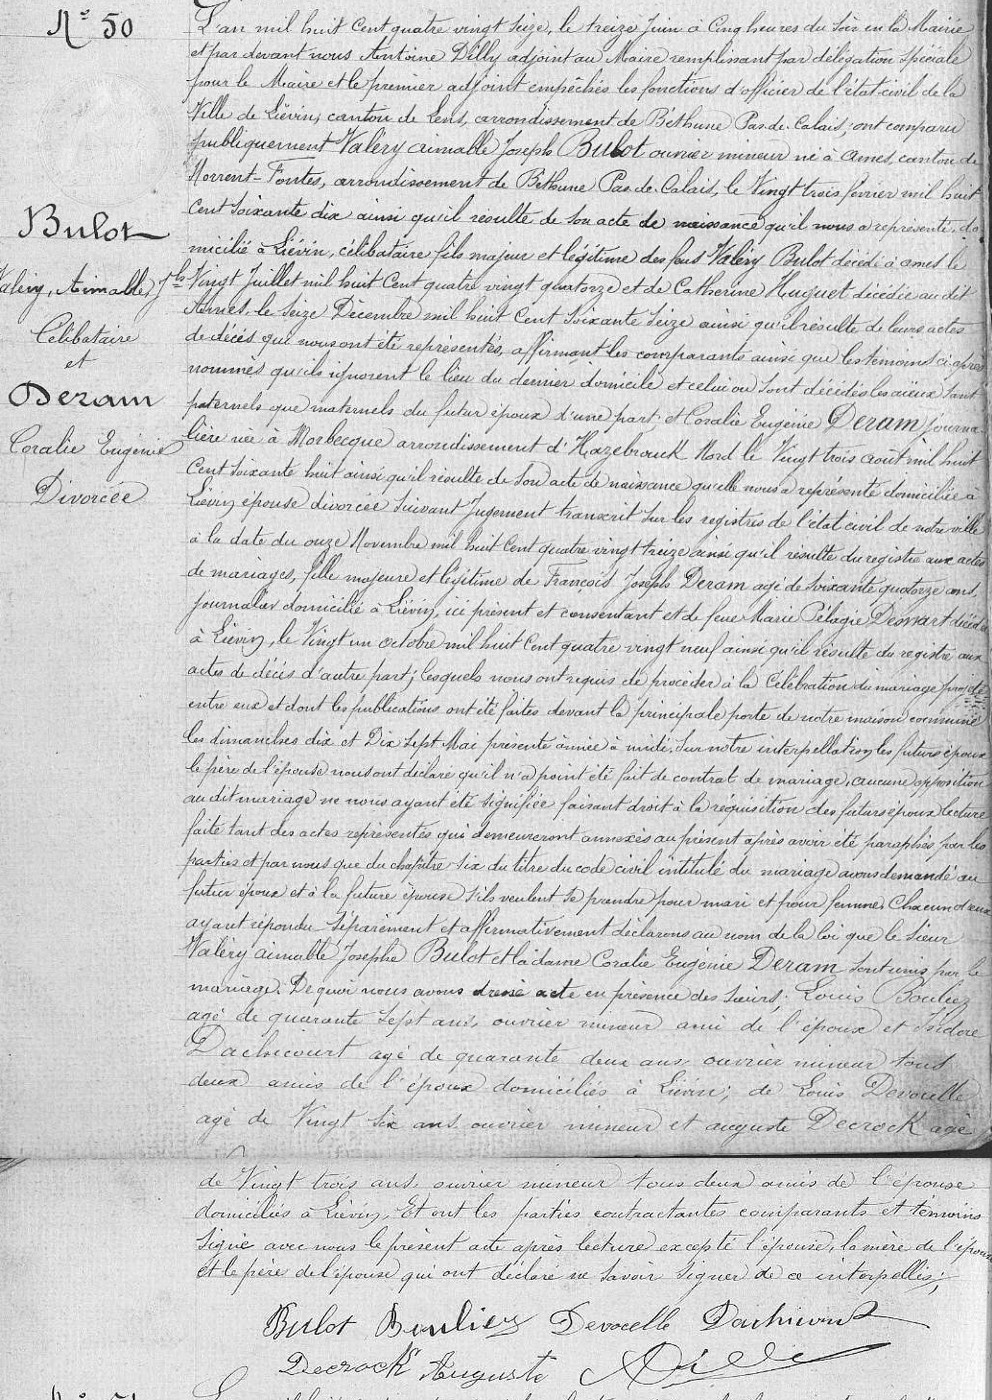 N° 50
L'an mil huit Cent quatre vingt Seize, le treize Juin à Cinq heures du Soir en la Mairie
et par devant nous Antoine Dilly adjoint au Maire remplissant par délégation Spéciale
pour le Maire et le premier adjoint empêchés les fonctions d'officier de l'état civil de la
Ville de Liévin, canton de Lens, arrondissement de Béthune Pas de Calais, ont comparu
publiquement Valéry aimable Joseph Bulot ouvrier mineur né à Ames, canton de
Norrent-Fontes, arrondissement de Béthune Pas de Calais, le Vingt trois février mil huit
Cent Soixante dix ainsi qu'il résulte de Son acte de naissance qu'il nous a représenté, do
Bulot
micilié à Liévin, célibataire fils majeur et légitime des feus Valéry Bulot décédé à ames le
Valéry, Aimable, Jph
Vingt Juillet mil huit Cent quatre vingt quatorze et de Catherine Huguet décédée au dit
Ames, le Seize Décembre mil huit Cent Soixante Seize ainsi qu'il résulte de leurs actes
Célibataire
de décès qui nous ont été représentés, affirmant les comparants ainsi que les témoins ci-après
et
nommés qu'ils ignorent le lieu du dernier domicile et celui où Sont décédés les aïeux tant
Deram
paternels que maternels du futur époux d'une part; et Coralie Eugénie Deram journa-
Coralie Eugénie
lière née à Morbecque arrondissement d'Hazebrouck Nord le Vingt trois août mil huit
Cent Soixante huit ainsi qu'il résulte de Son acte de naissance qu'elle nous a représenté domiciliée à
Divorcée
Liévin épouse divorcée Suivant Jugement transcrit Sur les registres de l'état civil de notre ville
à la date du onze Novembre mil huit Cent quatre vingt treize ainsi qu'il résulte du registre aux actes
de mariages, fille majeure et légitime de François Joseph Deram agé de Soixante quatorze ans,
journalier domicilié à Liévin, ici présent et consentant et de feue Marie Pélagie Deswart décédée
à Liévin, le Vingt un octobre mil huit Cent quatre vingt neuf ainsi qu'il résulte du registre aux
actes de décès d'autre part; lesquels nous ont requis de procéder à la Célébration du mariage projeté
entre eux et dont les publications ont été faites devant la principale porte de notre maison commune
les dimanches dix et Dix Sept Mai présente année à midi, Sur notre interpellation les futurs époux
le père de l'épouse nous ont déclaré qu'il n'a point été fait de contrat de mariage, aucune opposition
au dit mariage ne nous ayant été Signifiée faisant droit à la réquisition des futurs époux lecture
faite tant des actes représentés qui demeureront annexés au présent après avoir été paraphés par les
parties et par nous que du chapitre Six du titre du code civil intitulé du mariage avons demandé au
futur époux et à la future épouse S'ils veulent Se prendre pour mari et pour femme. Chacun d'eux
ayant répondu Séparément et affirmativement déclarons au nom de la loi que le Sieur
Valéry aimable Josephe Bulot et la dame Coralie Eugénie Deram Sont unis par le
mariage. De quoi nous avons dressé acte en présence des Sieurs: Louis Bouliez
agé de quarante Sept ans, ouvrier mineur ami de l'époux et Isidore
Dachicourt agé de quarante deux ans ouvrier mineur tous
deux amis de l'époux domiciliés à Liévin; de Louis Devocelle
agé de Vingt Six ans ouvrier mineur et auguste Decrock agé
de Vingt trois ans, ouvrier mineur tous deux amis de l'épouse
domiciliés à Liévin, Et ont les parties contractantes comparants et témoins
Signé avec nous le présent acte après lecture excepté l'épouse, la mère de l'époux
et le père de l'épouse qui ont déclaré ne Savoir Signer de ce interpellés;
Bulot Bouliez Devocelle Dachicourt
Decrock Auguste